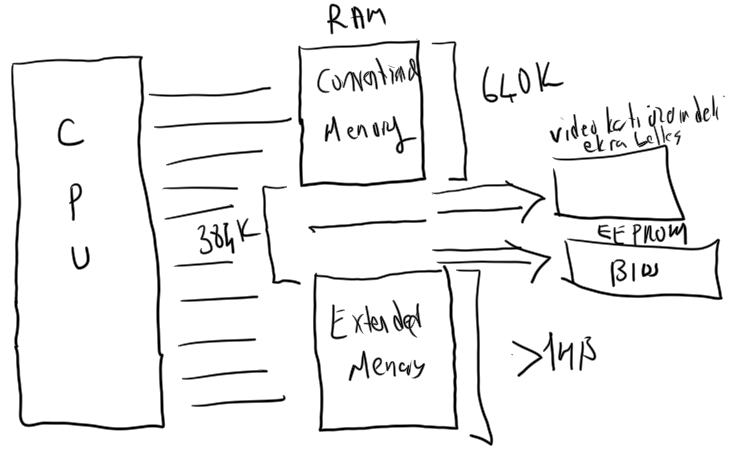 RAM
CPU
Conventional
Memory
640K
video kartı üzerindeki
ekra belleği
384K
EEPROM
BIOS
Extended
Memory
>1MB